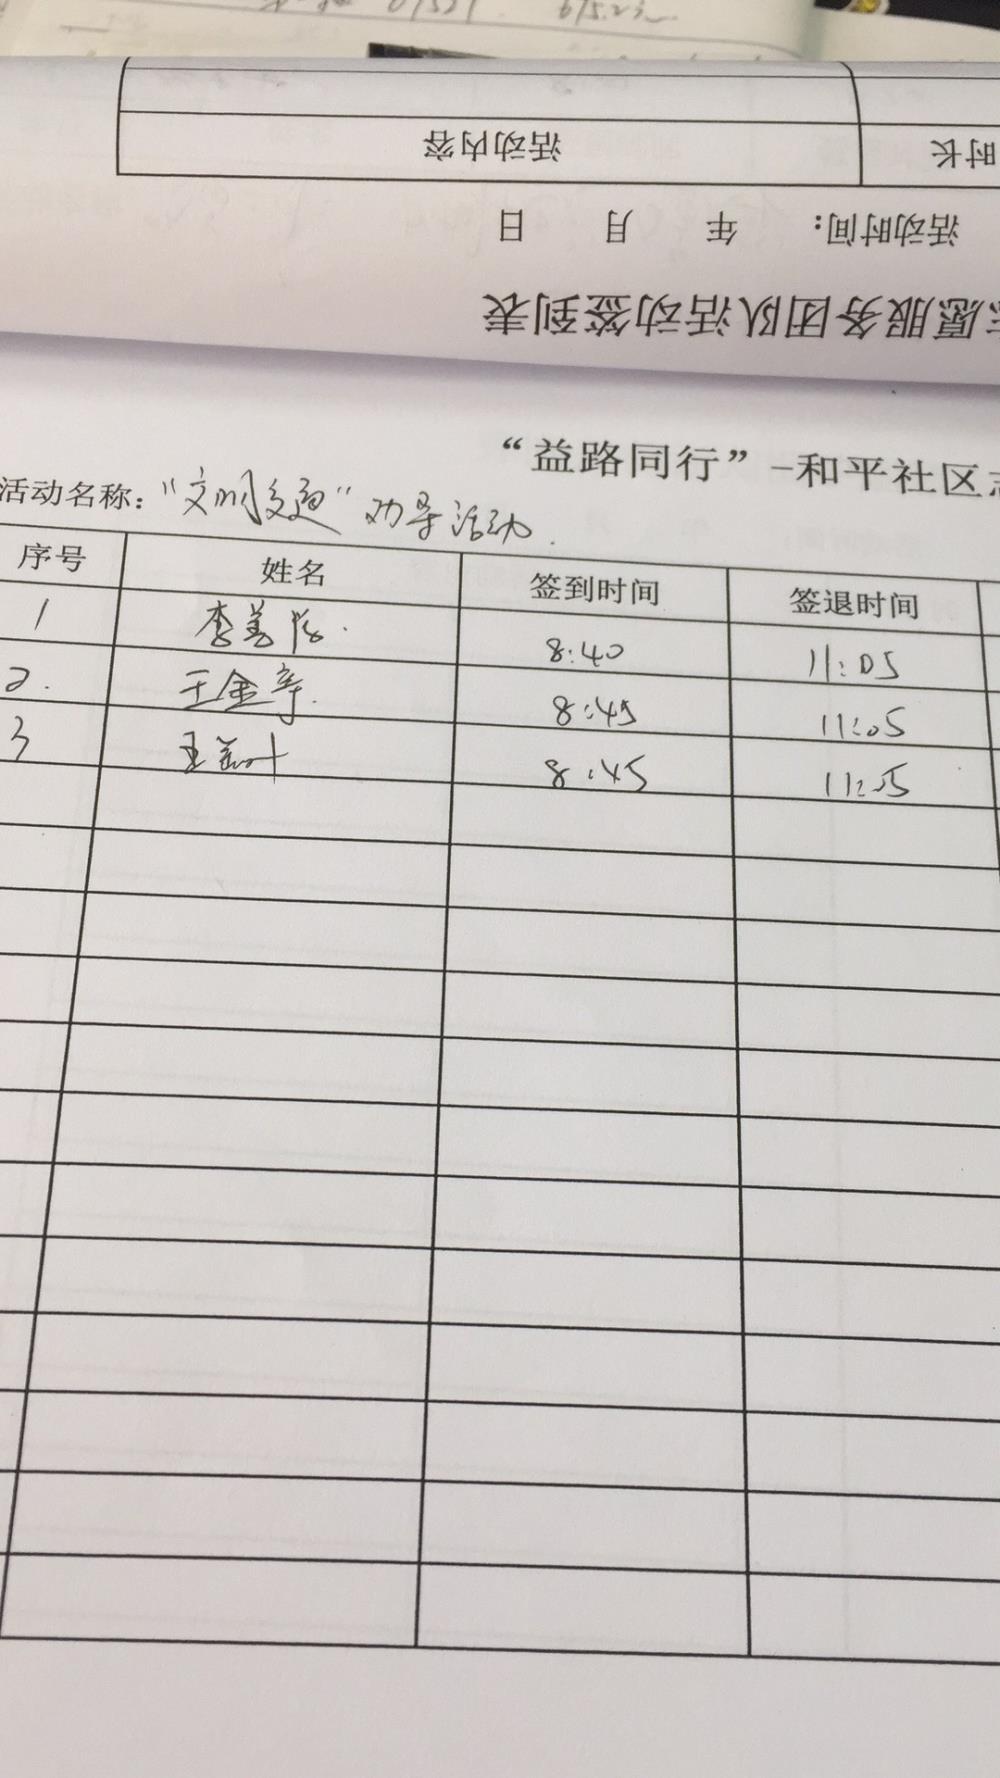 活动内容
时长
活动时间： 年 月 日
愿服务团队活动签到表
“益路同行”-和平社区志
活动名称：“文明交通”劝导活动.
序号 姓名 签到时间 签退时间
1 李善 8:40 11:05
2. 王金 8:45 11:05
3 王 8:45 11:05